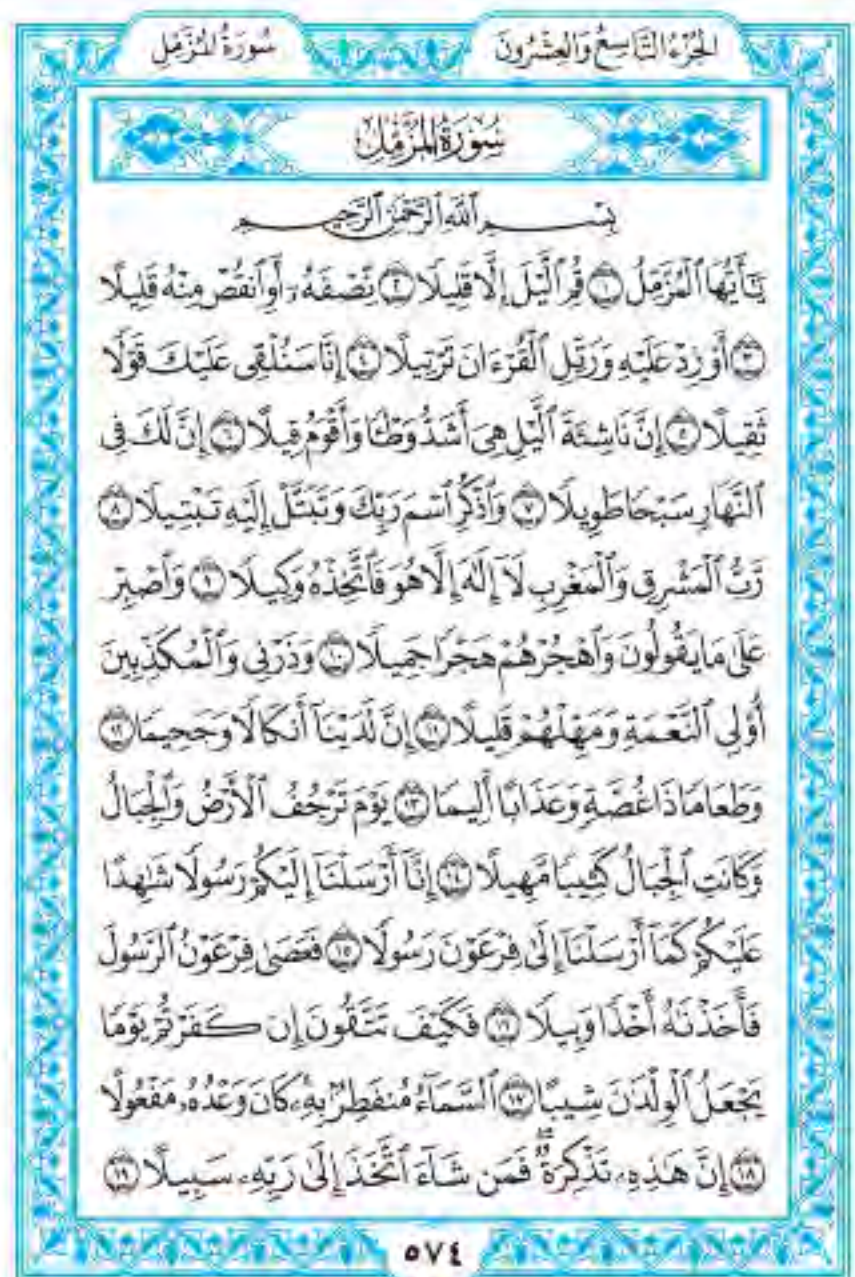 الجُزْءُ التَّاسِعُ وَالعِشْرُونَ
سُورَةُ المُزَّمِّل
سُورَةُ المُزَّمِّل
بِسْمِ ٱللَّهِ ٱلرَّحْمَٰنِ ٱلرَّحِيمِ
يَٰٓأَيُّهَا ٱلْمُزَّمِّلُ ١ قُمِ ٱلَّيْلَ إِلَّا قَلِيلًا ٢ نِّصْفَهُۥٓ أَوِ ٱنقُصْ مِنْهُ قَلِيلًا
٣ أَوْ زِدْ عَلَيْهِ وَرَتِّلِ ٱلْقُرْءَانَ تَرْتِيلًا ٤ إِنَّا سَنُلْقِى عَلَيْكَ قَوْلًا
ثَقِيلًا ٥ إِنَّ نَاشِئَةَ ٱلَّيْلِ هِىَ أَشَدُّ وَطْـًٔا وَأَقْوَمُ قِيلًا ٦ إِنَّ لَكَ فِى
ٱلنَّهَارِ سَبْحًا طَوِيلًا ٧ وَٱذْكُرِ ٱسْمَ رَبِّكَ وَتَبَتَّلْ إِلَيْهِ تَبْتِيلًا ٨
رَّبُّ ٱلْمَشْرِقِ وَٱلْمَغْرِبِ لَآ إِلَٰهَ إِلَّا هُوَ فَٱتَّخِذْهُ وَكِيلًا ٩ وَٱصْبِرْ
عَلَىٰ مَا يَقُولُونَ وَٱهْجُرْهُمْ هَجْرًا جَمِيلًا ١٠ وَذَرْنِى وَٱلْمُكَذِّبِينَ
أُو۟لِى ٱلنَّعْمَةِ وَمَهِّلْهُمْ قَلِيلًا ١١ إِنَّ لَدَيْنَآ أَنكَالًا وَجَحِيمًا ١٢
وَطَعَامًا ذَا غُصَّةٍ وَعَذَابًا أَلِيمًا ١٣ يَوْمَ تَرْجُفُ ٱلْأَرْضُ وَٱلْجِبَالُ
وَكَانَتِ ٱلْجِبَالُ كَثِيبًا مَّهِيلًا ١٤ إِنَّآ أَرْسَلْنَآ إِلَيْكُمْ رَسُولًا شَٰهِدًا
عَلَيْكُمْ كَمَآ أَرْسَلْنَآ إِلَىٰ فِرْعَوْنَ رَسُولًا ١٥ فَعَصَىٰ فِرْعَوْنُ ٱلرَّسُولَ
فَأَخَذْنَٰهُ أَخْذًا وَبِيلًا ١٦ فَكَيْفَ تَتَّقُونَ إِن كَفَرْتُمْ يَوْمًا
يَجْعَلُ ٱلْوِلْدَٰنَ شِيبًا ١٧ ٱلسَّمَآءُ مُنفَطِرٌۢ بِهِۦ كَانَ وَعْدُهُۥ مَفْعُولًا
١٨ إِنَّ هَٰذِهِۦ تَذْكِرَةٌ ۖ فَمَن شَآءَ ٱتَّخَذَ إِلَىٰ رَبِّهِۦ سَبِيلًا ١٩
٥٧٤